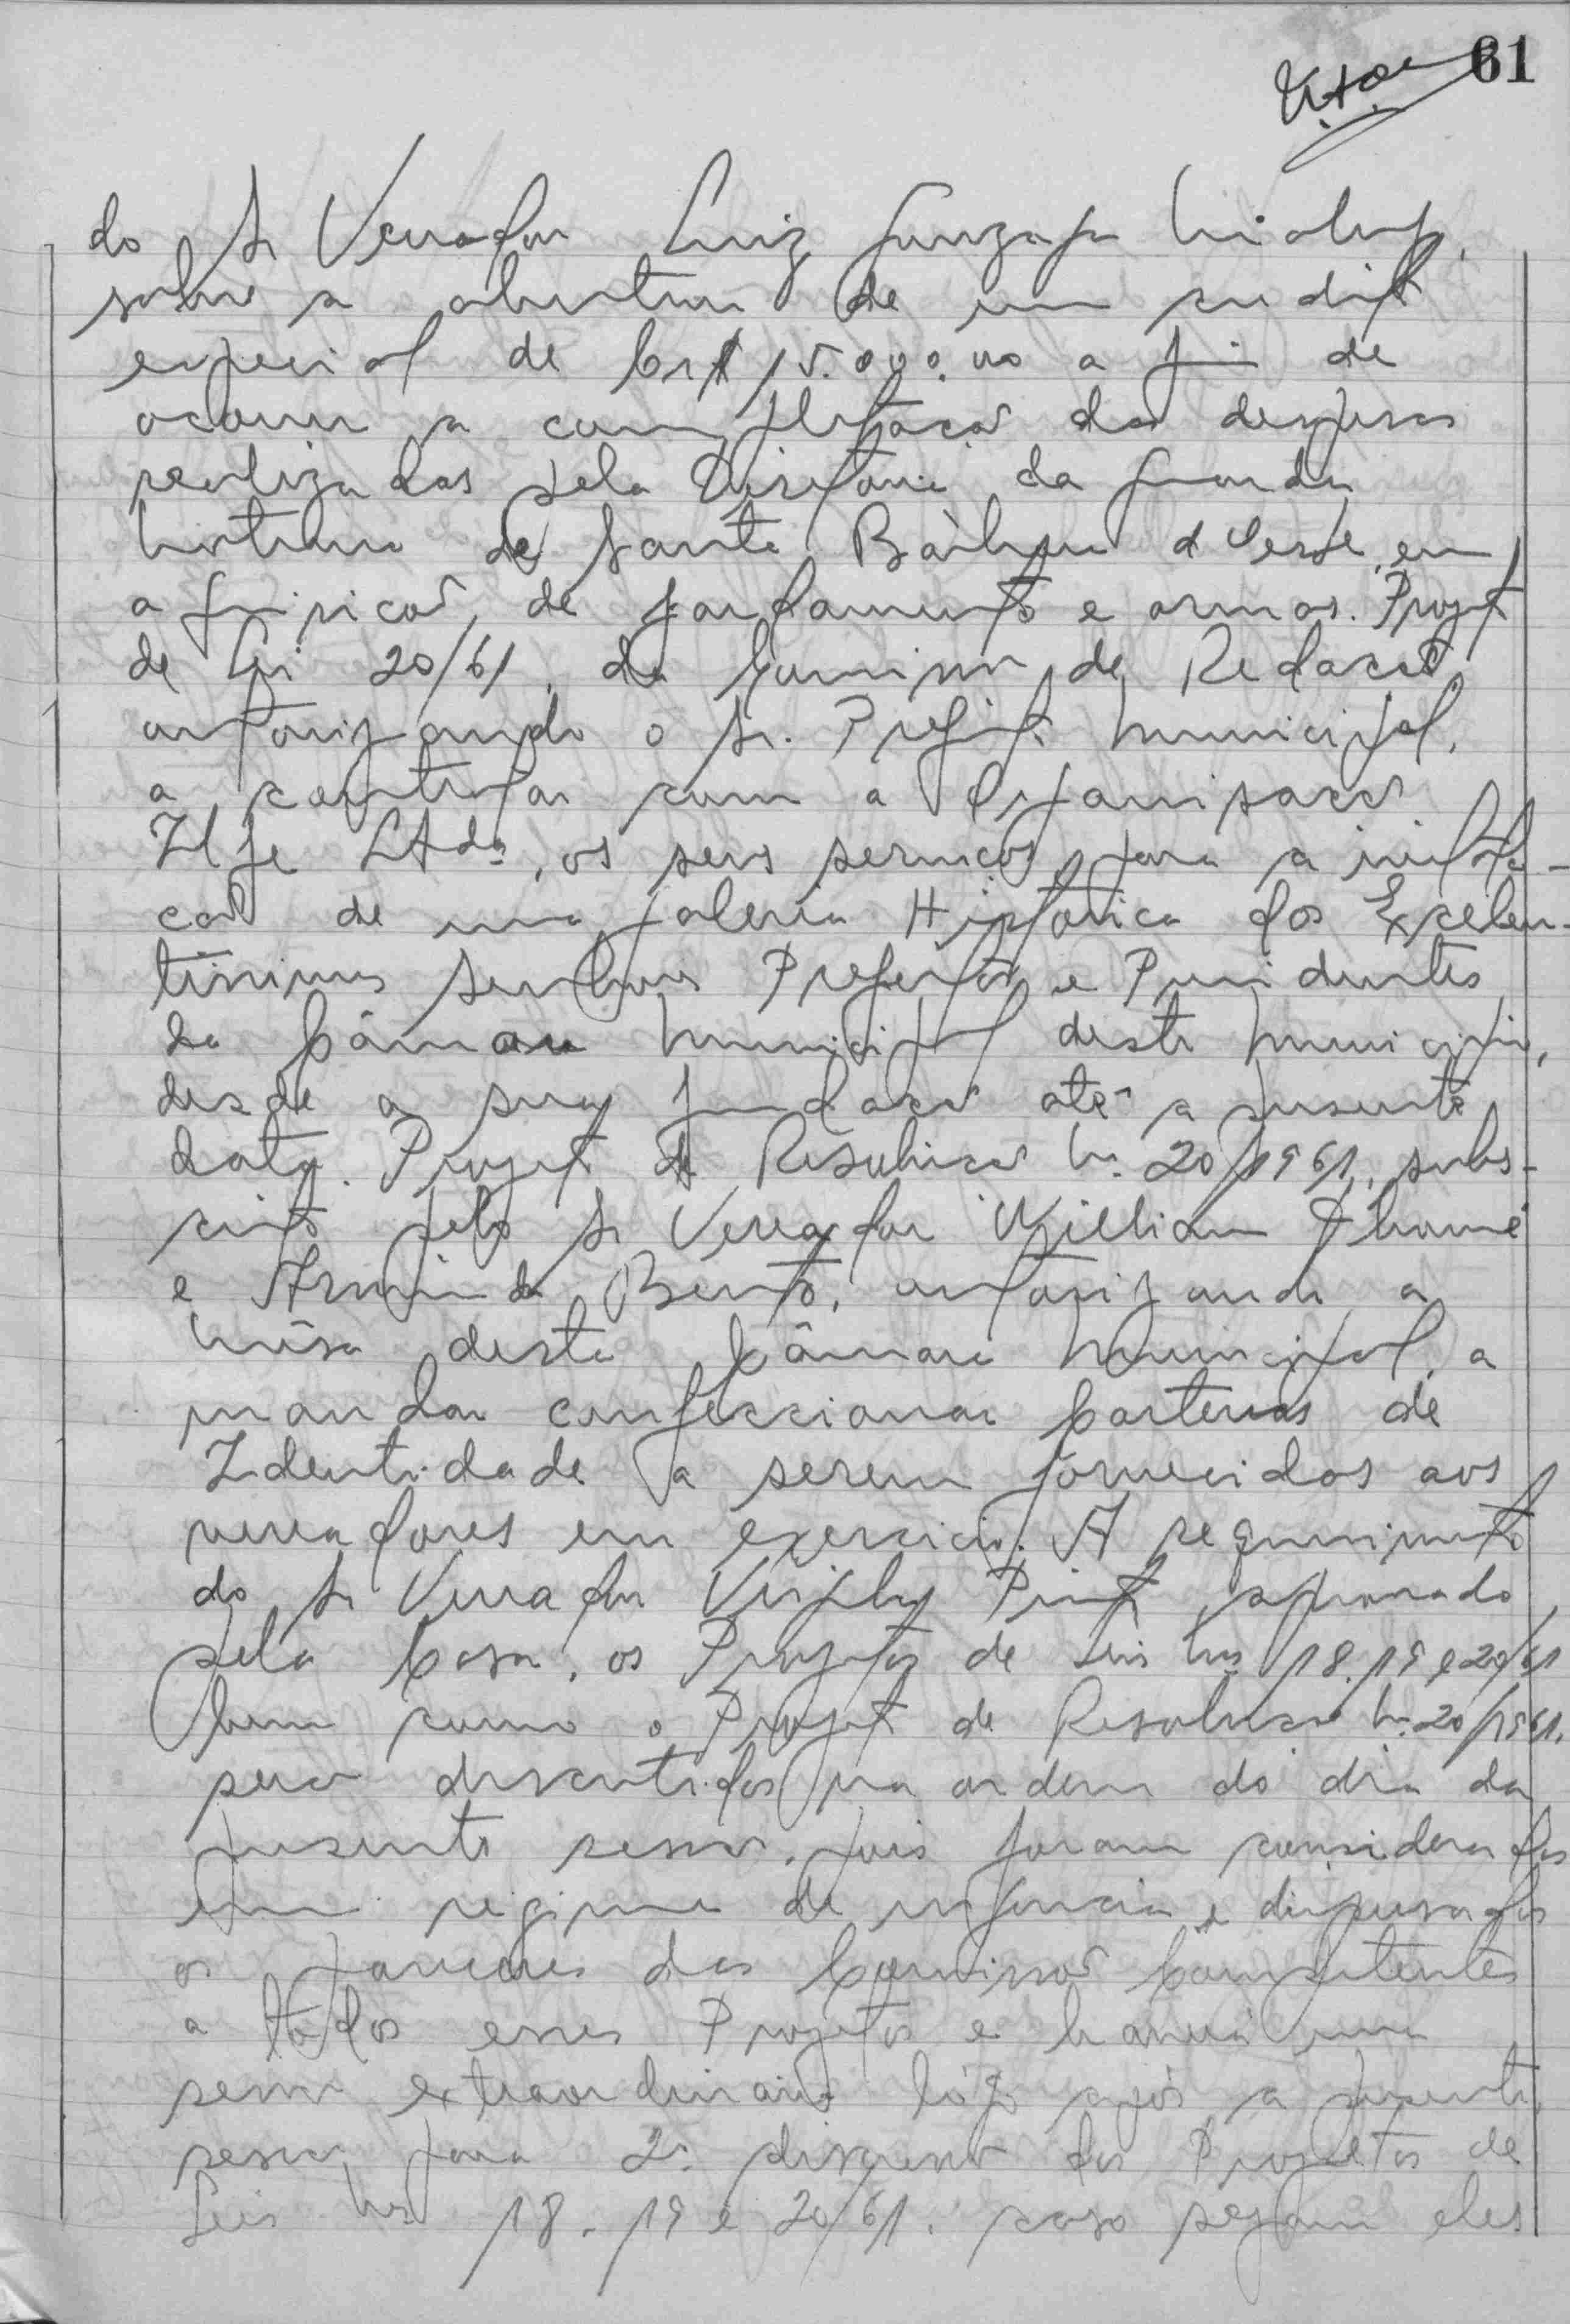 61
do Sr Vereador Luiz Gonzaga
sobre a abertura de um credito
especial de Cr$ 15.000.00 a fim de
ocorrer a complementação das despesas
realizadas pela Diretoria da Guarda
Noturna de Santa Bàrbara d'Oeste, em
aquisição, de fardamento e armas. Projeto
de Lei 20/61, da Comissão de Redação
autorizando o Sr. Prefeito Municipal,
a contratar com a Organisação
Ltda, os seus serviços, para a instala-
ção de uma galeria Histórica dos Excelen-
tíssimos Senhores Prefeitos e Presidentes
da Câmara Municipal deste Municipio,
desde a sua fundação até a presente
data. Projeto de Resolução Nº 20/1961, subs-
crito pelo Sr Vereador William
e Armindo Bento, autorizando a
Mêsa desta Câmara Municipal, a
mandar confeccionar Carteiras de
Identidade a serem fornecidas aos
vereadores em exercicio. A requerimento
do Sr Vereador aprovado
pela Casa, os Projetos de Leis Nrs 18, 19 e 20/61
bem como o Projeto de Resolução Nº 20/1961.
serão discutidos na ordem do dia da
presente sessão, pois foram considerados
em regime de urgencia e dispensados
os pareceres das Comissões Competentes
a todos esses Projetos e haverá uma
sessão extraordinaria lógo após a presente
sessão para 2ª discussão dos Projetos de
Leis Nrs 18, 19 e 20/61, caso sejam eles